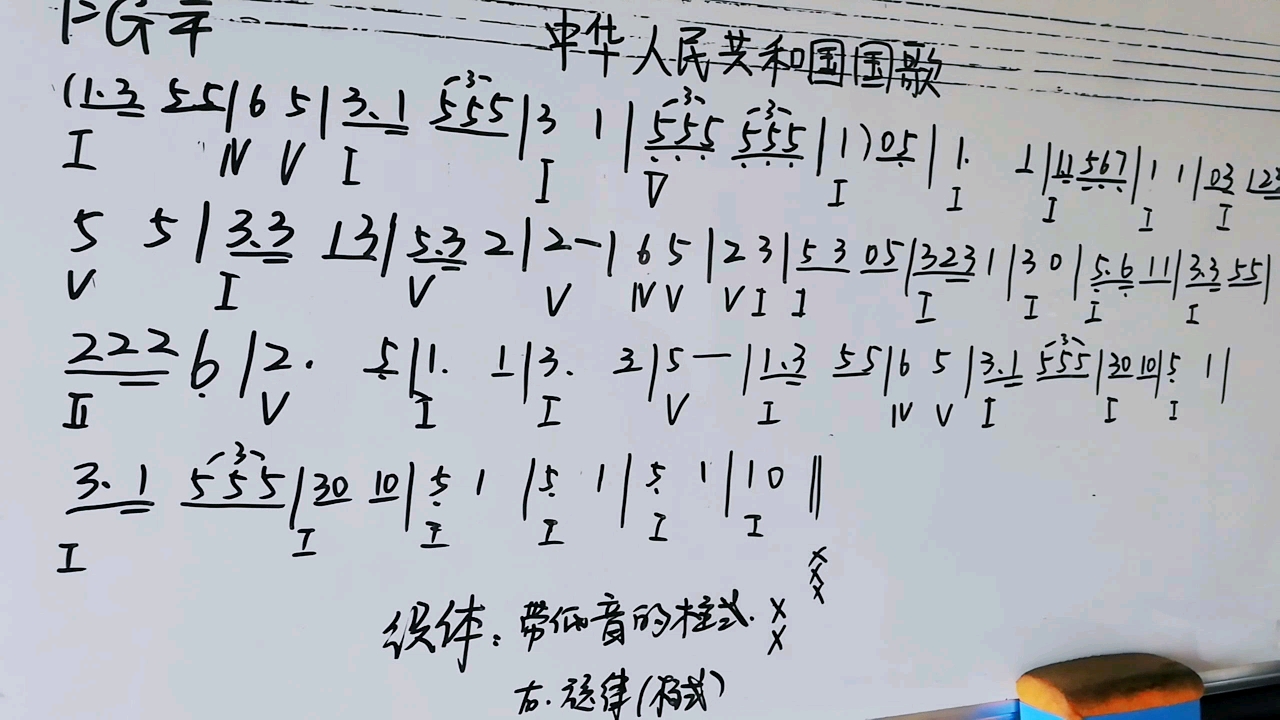 1=G 2/4
中华人民共和国国歌
(1.3 55|6 5|3.1 555|3 1|555 555|1)05|1. 1|11 567|1 1|03 12
I IV V I I V I I I I I
5 5|3.3 13|5.3 2|2-|6 5|2 3|5 3 05|323 1|3 0|5.6 11|3.3 55|
V I V V IV V V I I I I I I
222 6|2. 5|1. 1|3. 3|5—|1.3 55|6 5|3.1 555|30 10|5 1|
II V I I V I IV V I I I
3.1 555|30 10|5 1|5 1|5 1|10‖
I I I I I I
织体:带低音的柱式.
右.旋律(柱式)